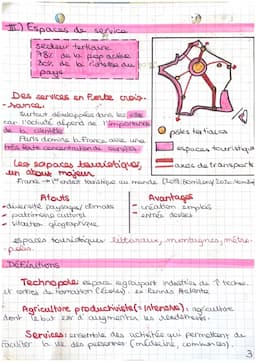 III.) Espaces de service
secteur tertiaire
78% de la pop active
80% de la richesse du
pays
Des services en forte crois-
-sance.
Surtout développées dans les ville
car l'activité dépend de l'importance
de la clientèle
Paris domine la France avec une
très forte concentration de
pôles tertiaires
espaces touristiques
axes de transports
Les espaces touristiques,
un atout majeur
France → 1er dest touristique au monde
Atouts
Avantages
-diversité paysages/climats
- création emplois
- patrimoine culturel
- entrées devises
- situation géographique
espaces touristiques littoraux, montagnes, métro-
-poles.
Définitions
Technopole: espace regroupant industries de
et centres de formation (écoles) ex Rennes Atalante
Agriculture productiviste (= intensive): agriculture
dont le but est d'augmenter les rendements.
Services: ensemble des activités qui permettent de
faciliter la vie des personnes (médecine, commerces).
3